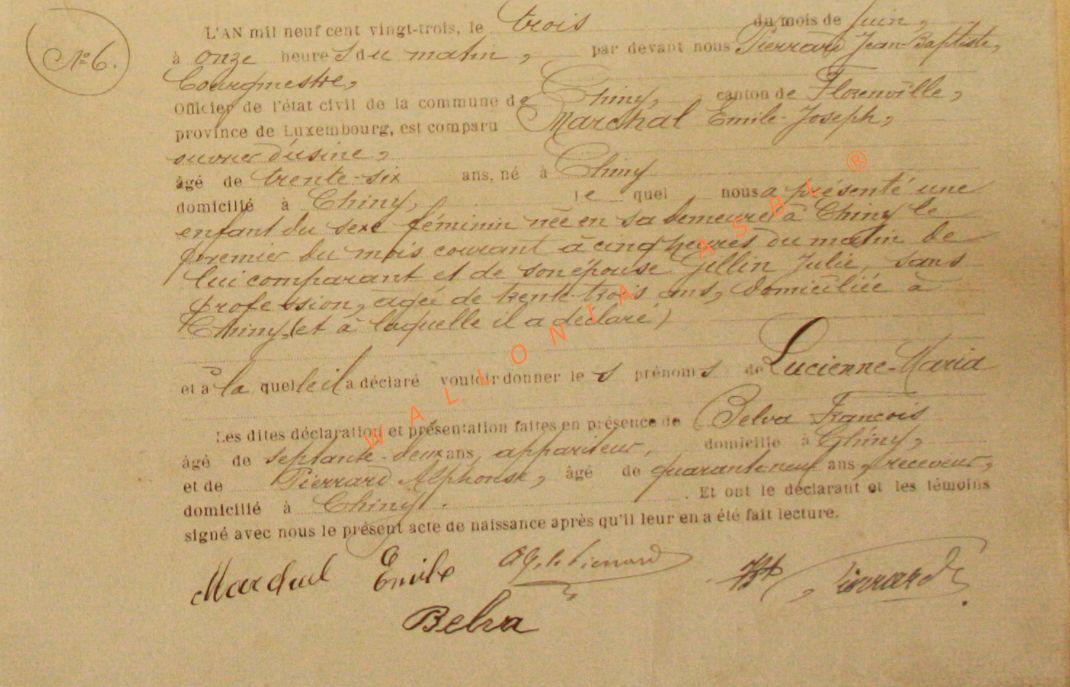 L'AN mil neuf cent vingt-trois, le trois du mois de juin,
N° 6.
à onze heure s du matin, par devant nous Pierrard Jean-Baptiste,
bourgmestre,
Officier de l'état civil de la commune de Chiny, canton de Florenville,
province de Luxembourg, est comparu Marchal Emile-Joseph,
ouvrier d'usine,
âgé de trente-six ans, né à Chiny
domicilié à Chiny, le quel nous a présenté une
enfant du sexe féminin née en sa demeure à Chiny le
premier du mois courant à cinq heures du matin de
lui comparant et de son épouse Gillin Julie, sans
profession, agée de trente-trois ans, domiciliée à
Chiny, (et à laquelle il a déclaré)
et à la quelle il a déclaré vouloir donner le s prénom s de Lucienne-Maria
Les dites déclaration et présentation faites en présence de Belva François
âgé de septante-deux ans, appariteur, domicilié à Chiny,
et de Pierrard Alphonse, âgé de quarante-neuf ans, receveur,
domicilié à Chiny. . Et ont le déclarant et les témoins
signé avec nous le présent acte de naissance après qu'il leur en a été fait lecture.
Marchal Emile Pierrard Pierrard
Belva
WALLONIA ASBL ®